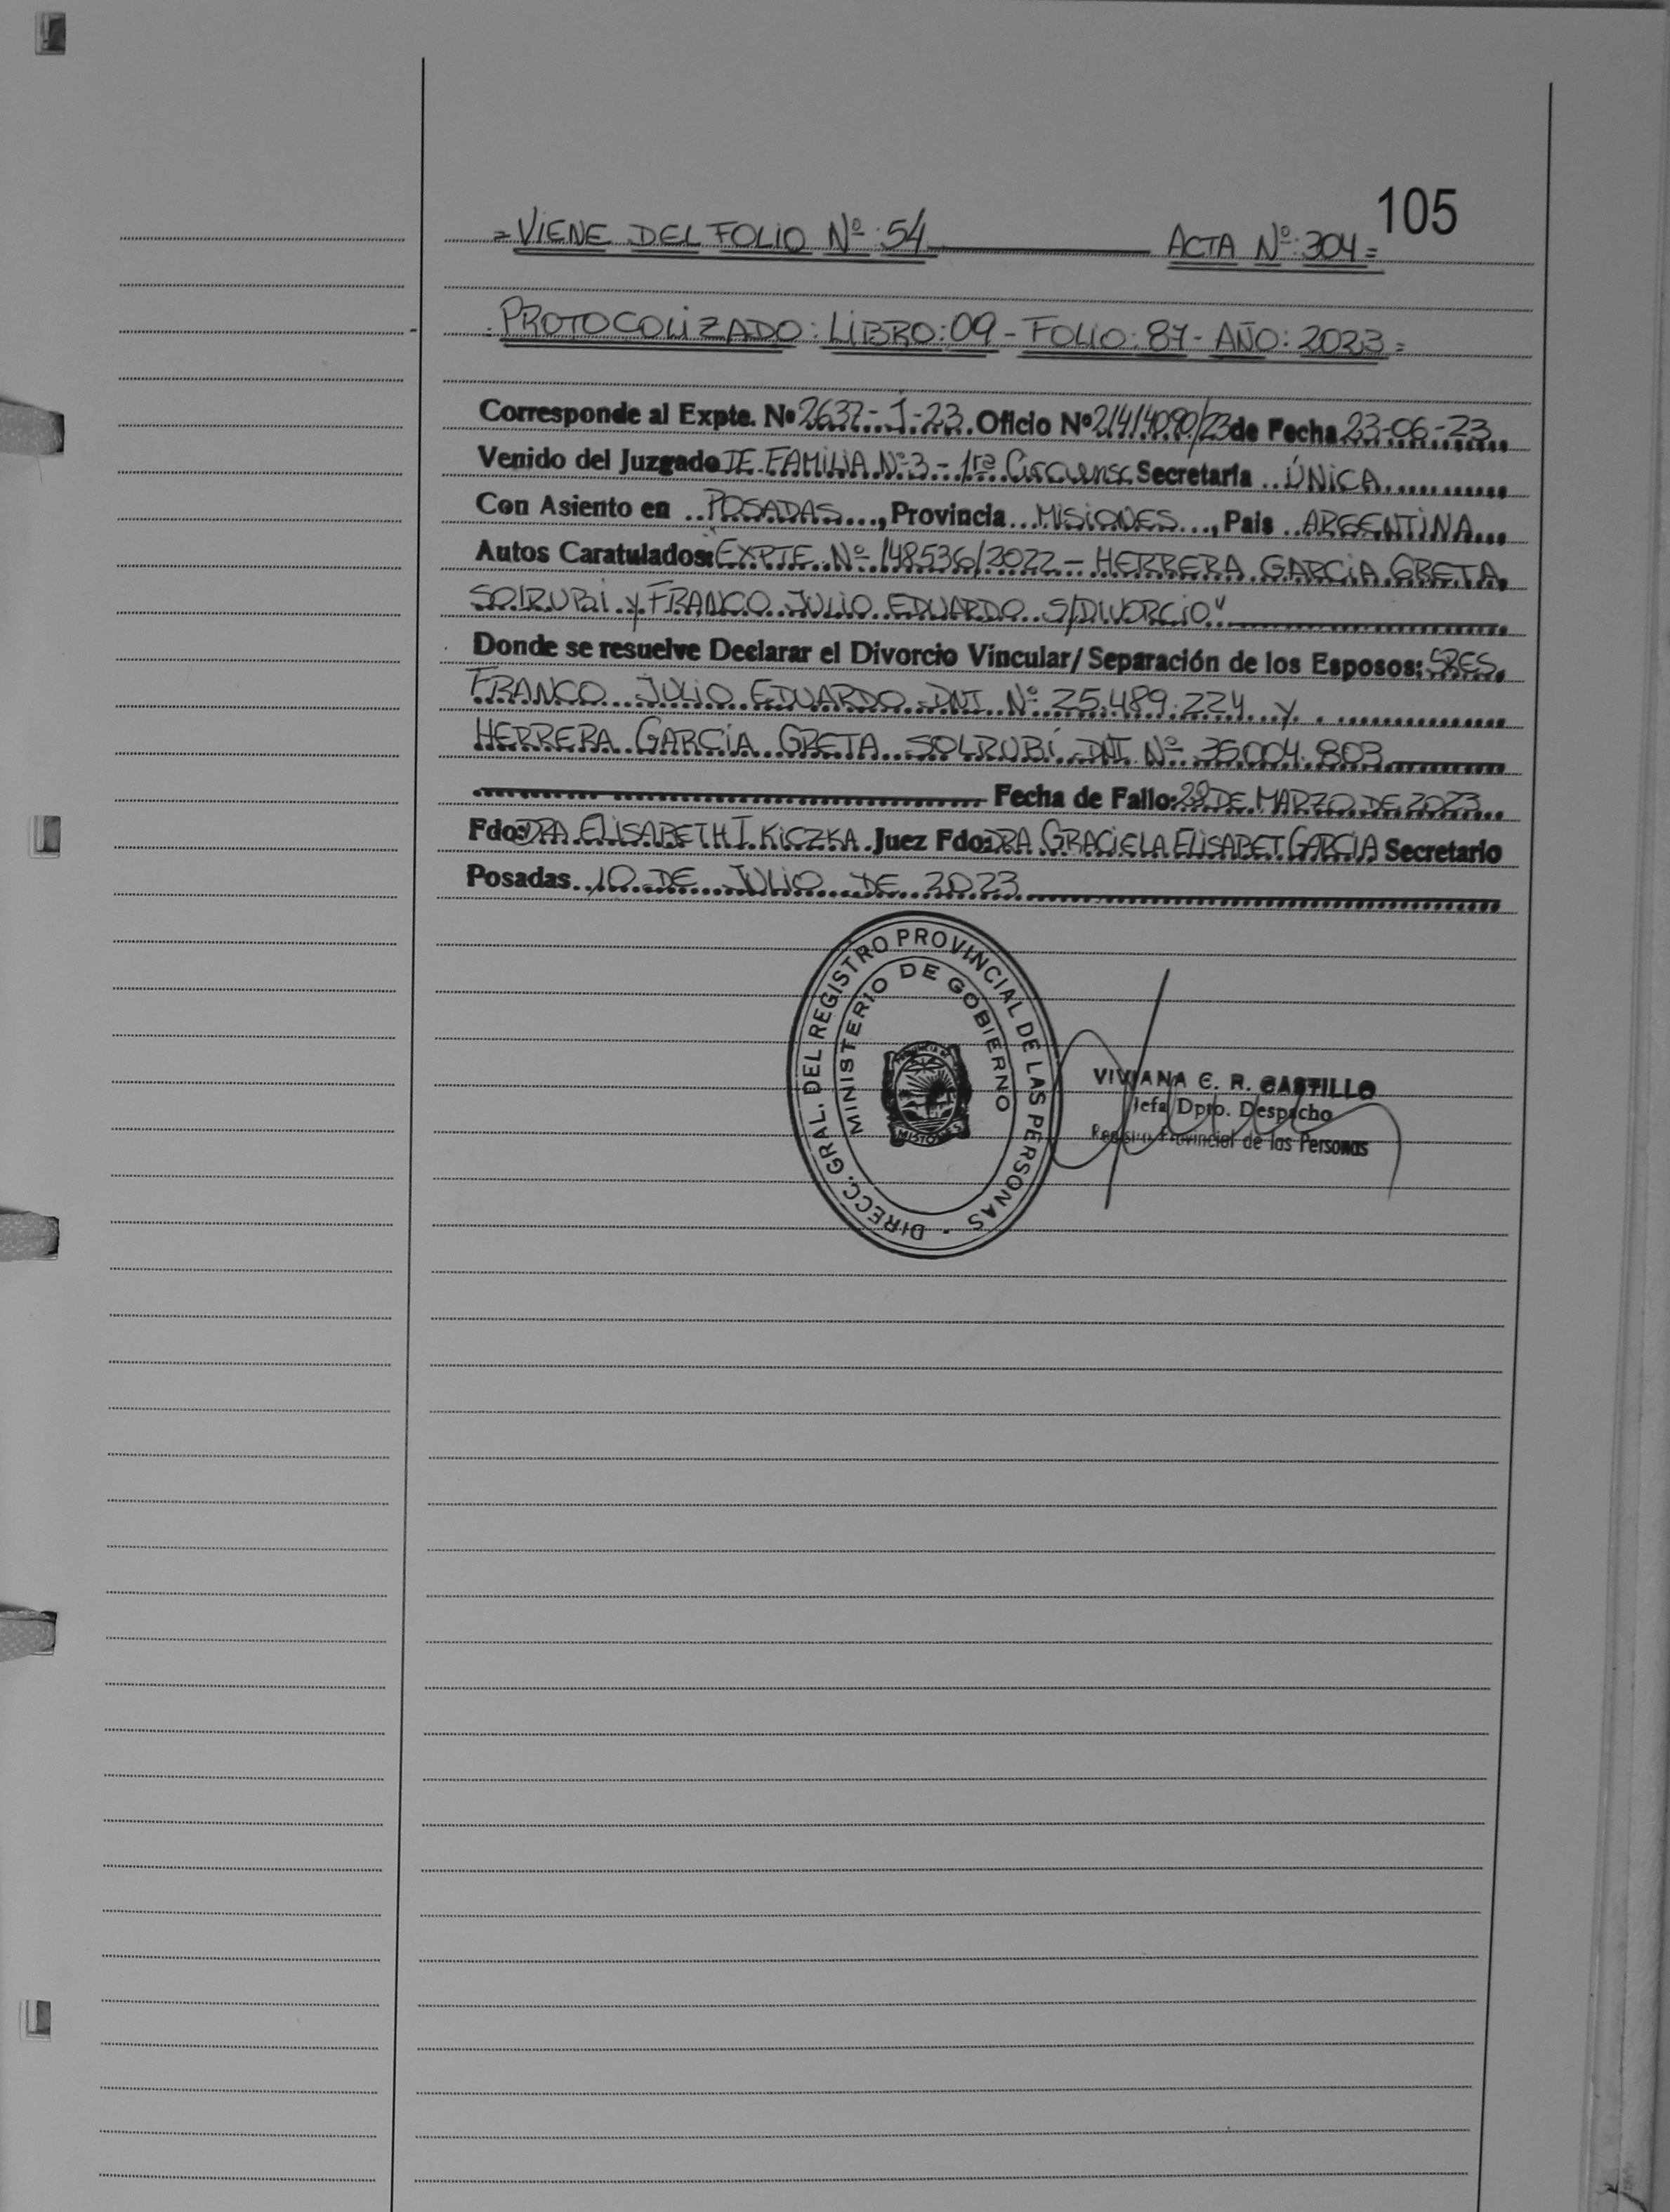 105
=VIENE DEL FOLIO Nº:54 ACTA Nº:304=
PROTOCOLIZADO: LIBRO:09-FOLIO:87-AÑO:2023=
Corresponde al Expte. Nº 2637-J-23. Oficio Nº 2141/4090/23 de Fecha 23-06-23
Venido del Juzgado DE FAMILIA Nº3-1ra Circunsc. Secretaría ÚNICA
Con Asiento en POSADAS, Provincia MISIONES, Pais ARGENTINA
Autos Caratulados: EXPTE Nº 148536/2022 - HERRERA GARCÍA GRETA
SOLRUBÍ y FRANCO JULIO EDUARDO S/DIVORCIO"
Donde se resuelve Declarar el Divorcio Vincular/Separación de los Esposos: SRES.
FRANCO JULIO EDUARDO DNI Nº 25.489.224 y
HERRERA GARCÍA GRETA SOLRUBÍ DNI Nº 35.004.803
Fecha de Fallo: DE MARZO DE 2023
Fdo: DRA ELISABETH I. KICZKA Juez Fdo: DRA GRACIELA ELISABET GARCÍA Secretario
Posadas 10 DE JULIO DE 2023
DIRECC. GRAL. DEL REGISTRO PROVINCIAL DE LAS PERSONAS
MINISTERIO DE GOBIERNO
MISIONES
VIVIANA C. R. CASTILLO
Jefa Dpto. Despacho
Registro Provincial de las Personas